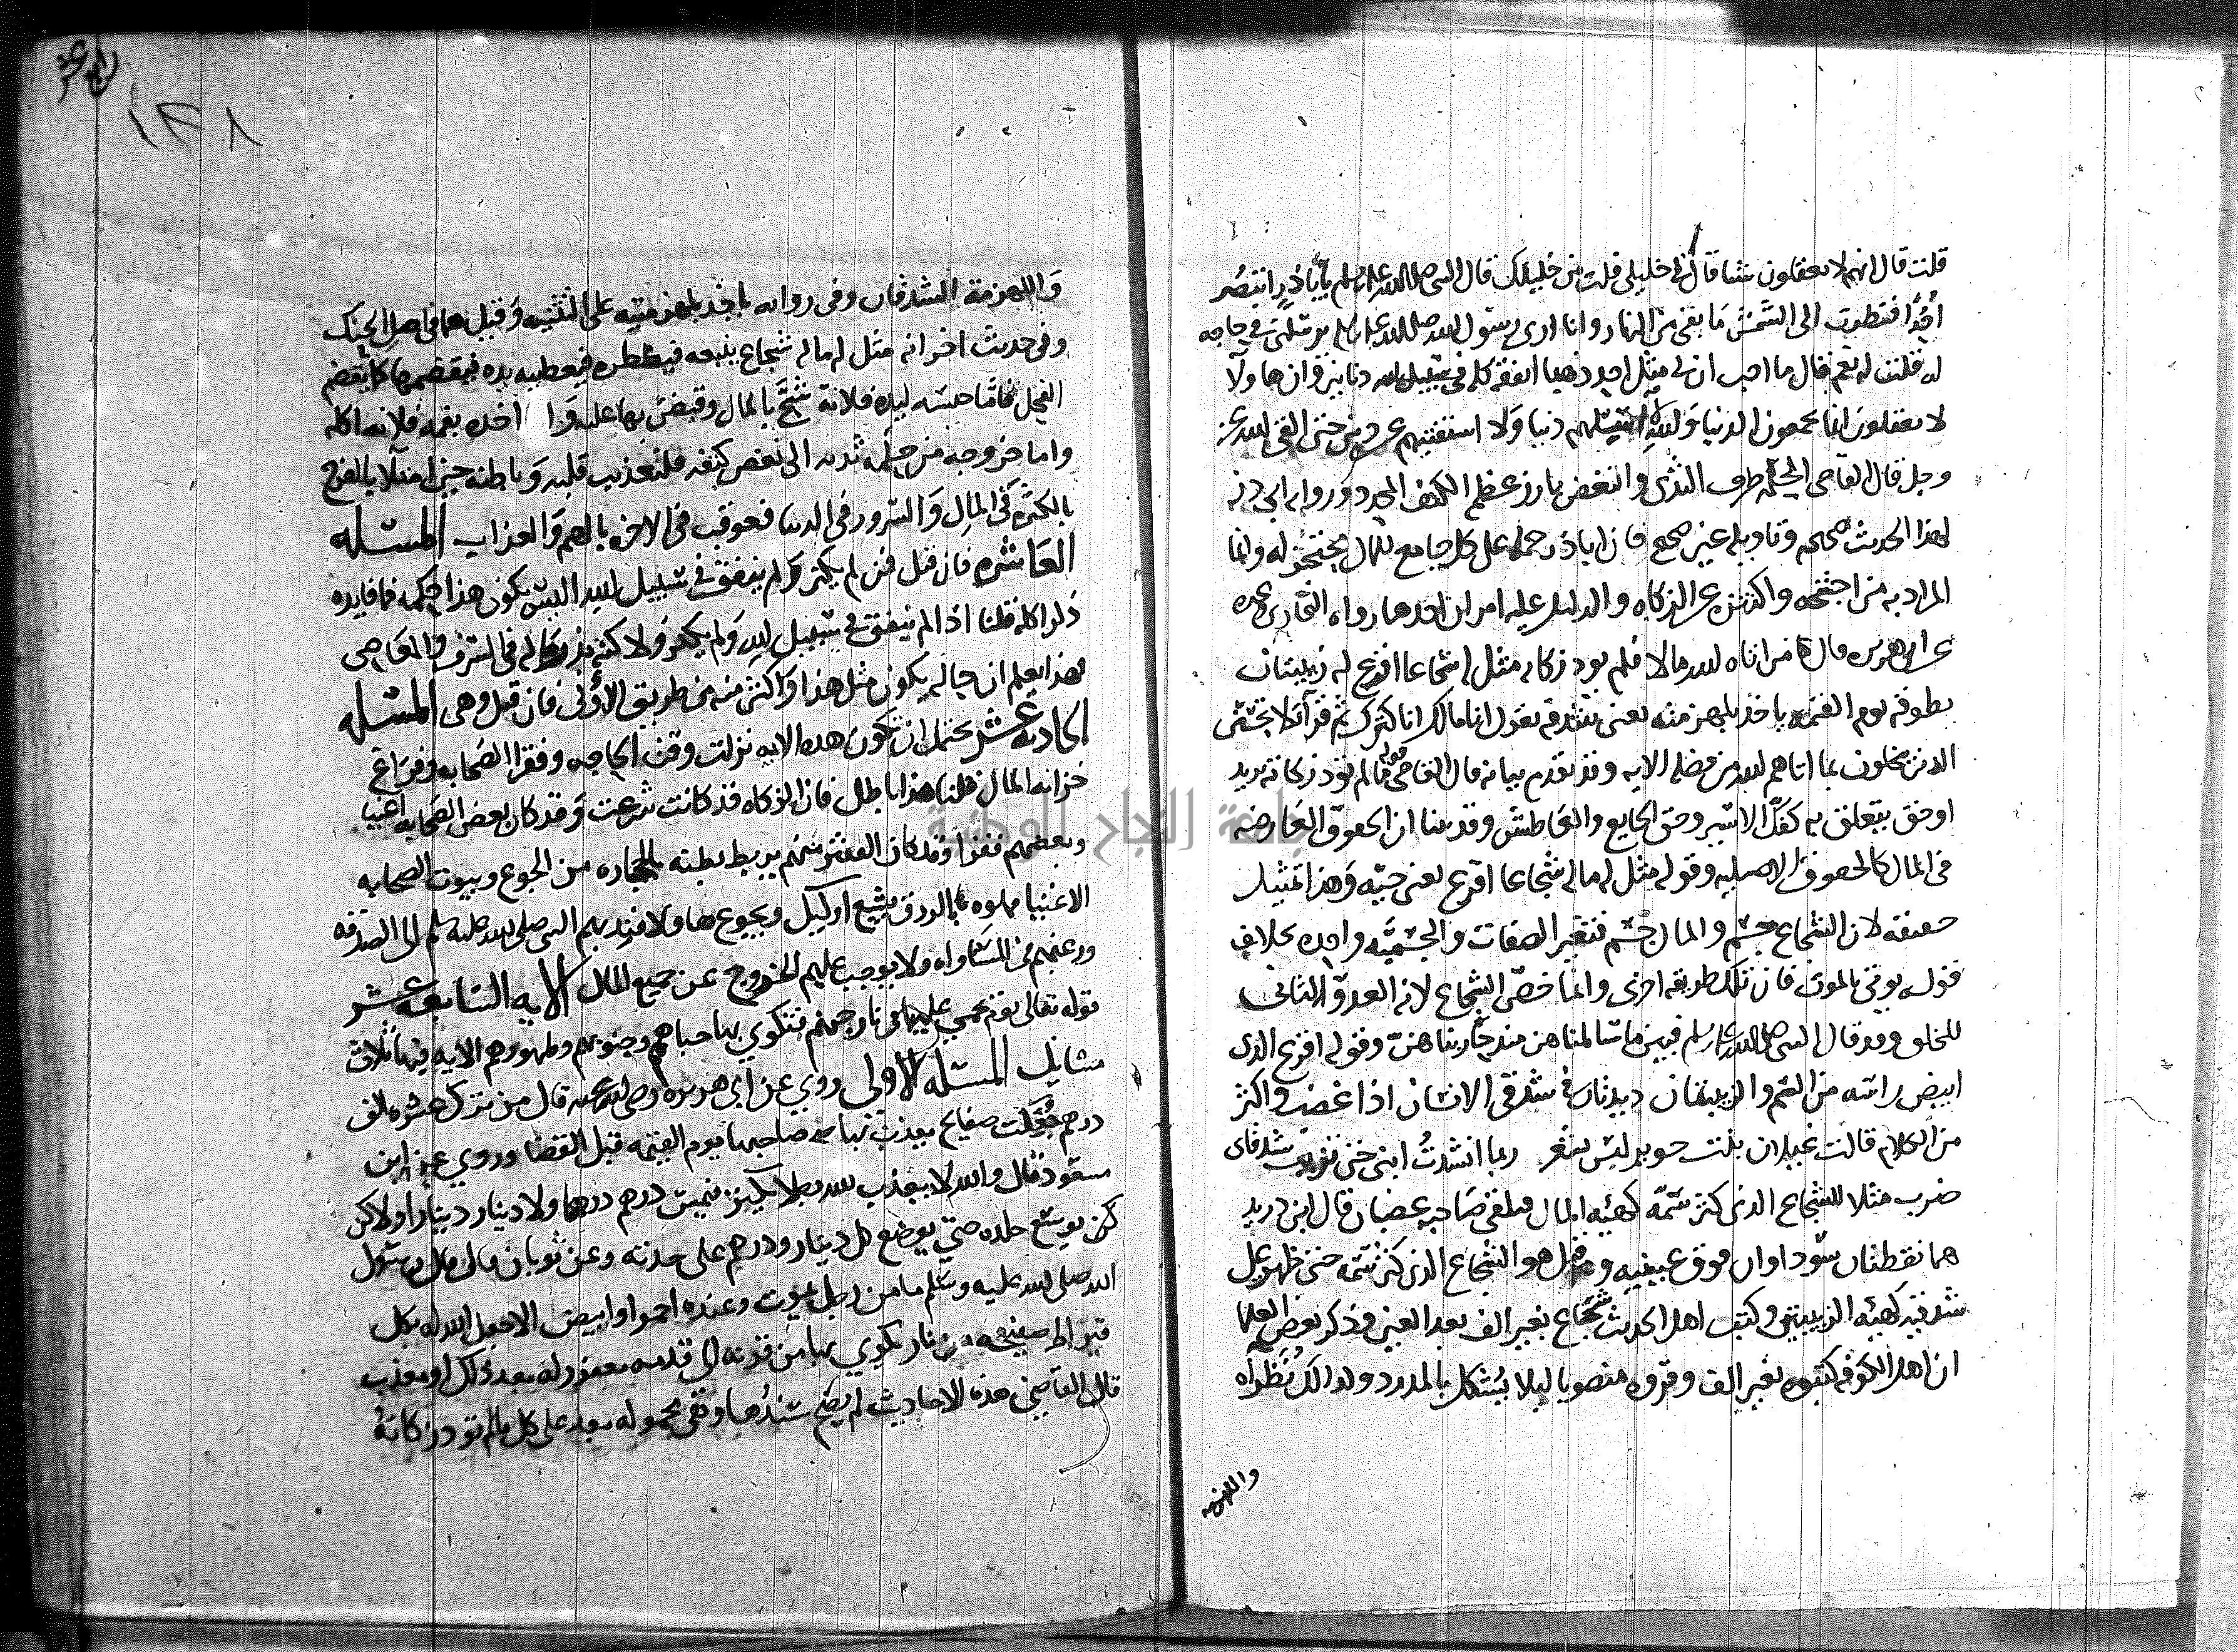 قلت قال انهم لا يعقلون شيا قال لي خليلي قلت من خليلك قال النبي صلى الله عليه وسلم يا أبا ذر اتبصر
أحدًا فنظرت الى الشمس ما بقى من النهار وانا ارى رسول الله صلى الله عليه وسلم يرسلني في حاجه
له قلت له نعم قال ما احب ان لي مثل احد ذهبا انفقه كله في سبيل الله دنانير وان هاولا
لا يعقلون انما يجمعون الدنيا ولا والله لا اسيلهم دنيا ولا استفتيهم عن دين حتى القى الله عز
وجل قال القاضي الحلمة طرف الثدي والنغض بارز عظم الكتف المحدد ورواية ابي ذر
لهذا الحديث صحيحه وتاويله غير صحيح فان اباذر حمله على كل جامع للمال محتجز له وانما
المراد به من احتجنه واكتنزه عن الزكاه والدليل عليه امران احدهما رواه البخاري وغيره
عن ابي هريره قال من اتاه الله مالا فلم يود زكاته مثل له شجاعا اقرع له زبيبتان
يطوقه يوم القيمه ياخذ بلهزمتيه يعني شدقيه يقول انا مالك انا كنزك ثم قرأ لا يحسبن
الذين يبخلون بما اتاهم الله من فضله الايه وقد تقدم بيانه قال القاضي قوله ما لم تود زكاته يريد
او حق يتعلق به كفك الاسير وحق الجايع والعاطش وقد بينا ان الحقوق العارضه
في المال كالحقوق الاصليه وقوله مثل له ماله شجاعا اقرع يعني حيه وهذا تمثيل
حقيقه لان الشجاع جسم والمال جسم فتغير الصفات والجسميه واحده بخلاف
قوله يوتى بالموت فان تلك طريقه اخرى وانما خص الشجاع لانه العدو الثاني
للخلق وقد قال النبي صلى الله عليه وسلم فيهن ما سالمناهن منذ حاربناهن وقوله اقرع الذي
ابيض راسه من السم والزبيبتان زبدتان في شدقي الانسان اذا غضب واكثر
من الكلام قالت غيلان بنت جرير ليس تنغر ربما انشدتُ ابي حتى تزبب شدقاي
ضرب مثلا للشجاع الذي كثر سمه كهيئه المال فيلقى صاحبه غضبان قال ابن دريد
هما نقطتان سوداوان فوق عينيه وقيل هو الشجاع الذي كثر سمه حتى ظهر على
شدقيه كهيئه الزبيبتين وكتب اهل الحديث شجاع بغير الف بعد العين وذكر بعض العلما
ان اهل الكوفه كتبوه بغير الف وقروه منصوبا ليلا يشكل بالمدود ولذلك نظراه
واللهزمه
رابع عشر
١٣٨
واللهزمة الشدقان وفي روايه ياخذ بلهزمتيه على التثنيه وقيل هما في اصل الحنك
وفي حديث اخر انه مثل له ماله شجاع يتبعه فيضطره فيعطيه يده فيقضمها كما يقضم
الفحل فاما حبسه ليده فلانه شح بالمال وقبض بها عليه وا اخذه بفمه فلانه اكله
واما خروجه من حلمه ثديه الى نغض كتفه فلتعذيب قلبه وباطنه حين امتلا بالفرح
بالكثرة في المال والسرور في الدنيا فعوقب في الاخره بالهم والعذاب المسئله
العاشره فان قيل فمن لم يكنز ولم ينفق في سبيل الله اليس يكون هذا حكمه فما فايده
ذكر الكنز قلنا اذا لم ينفق في سبيل الله ولم يكنز ولاكنه بذر ماله في السرف والمعاصي
فهذا يعلم ان حاله يكون مثل هذا واكثر منه من طريق الأولى فان قيل وهي المسئله
الحاديه عشر يحتمل ان تكون هذه الايه نزلت وقت الحاجه وفقر الصحابه وفراغ
خزانه المال قلنا هذا باطل فان الزكاه قد كانت شرعت وقد كان بعض الصحابه اغنيا
وبعضهم فقرا وقد كان الفقير منهم يربط بطنه بالحجاره من الجوع وبيوت الصحابه
الاغنيا مملوه بالرزق يشبع اوليك ويجوع هاولا فندبهم النبي صلى الله عليه وسلم الى الصدقه
ورغبهم في المساواه ولا يوجب عليهم الخروج عن جميع المال الايه السابعه عشر
قوله تعالى يوم يحمى عليها في نار جهنم فتكوى بها جباههم وجنوبهم وظهورهم الايه فيها ثلاث
مسايل المسئله الاولى روي عن ابي هريره رضي الله عنه قال من ترك عشره الف
درهم جعلت صفايح يعذب بها صاحبها يوم القيمه قبل القضا وروي عن ابن
مسعود قال والله لا يعذب الله رجلا يكنز فيمس درهم درهما ولا دينار دينارا ولاكن
كن يوسع جلده حتى يوضع كل دينار ودرهم على حدته وعن ثوبان قال قال رسول
الله صلى الله عليه وسلم ما من رجل يموت وعنده احمر او ابيض الا جعل الله له بكل
قيراط صفيحه من نار يكوى بها من قدنه الى قدمه مغفور له بعد ذلك او معذب
قال القاضي هذه الاحاديث لم يصح سندها وهي محموله بعد على كل ما لم تود زكاته